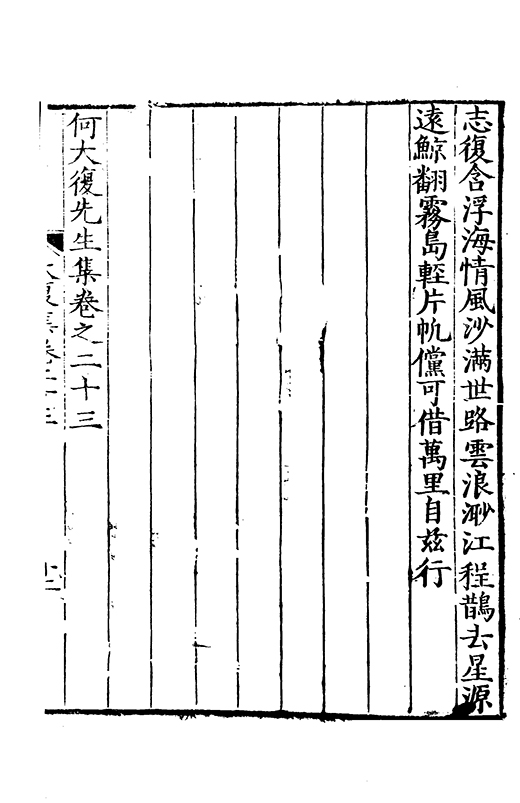 志復含浮海情風沙滿世路雲浪渺江程鵲去星源
遠鯨翻霧島輕片帆儻可借萬里自兹行
何大復先生集卷之二十三
大復集卷二十三